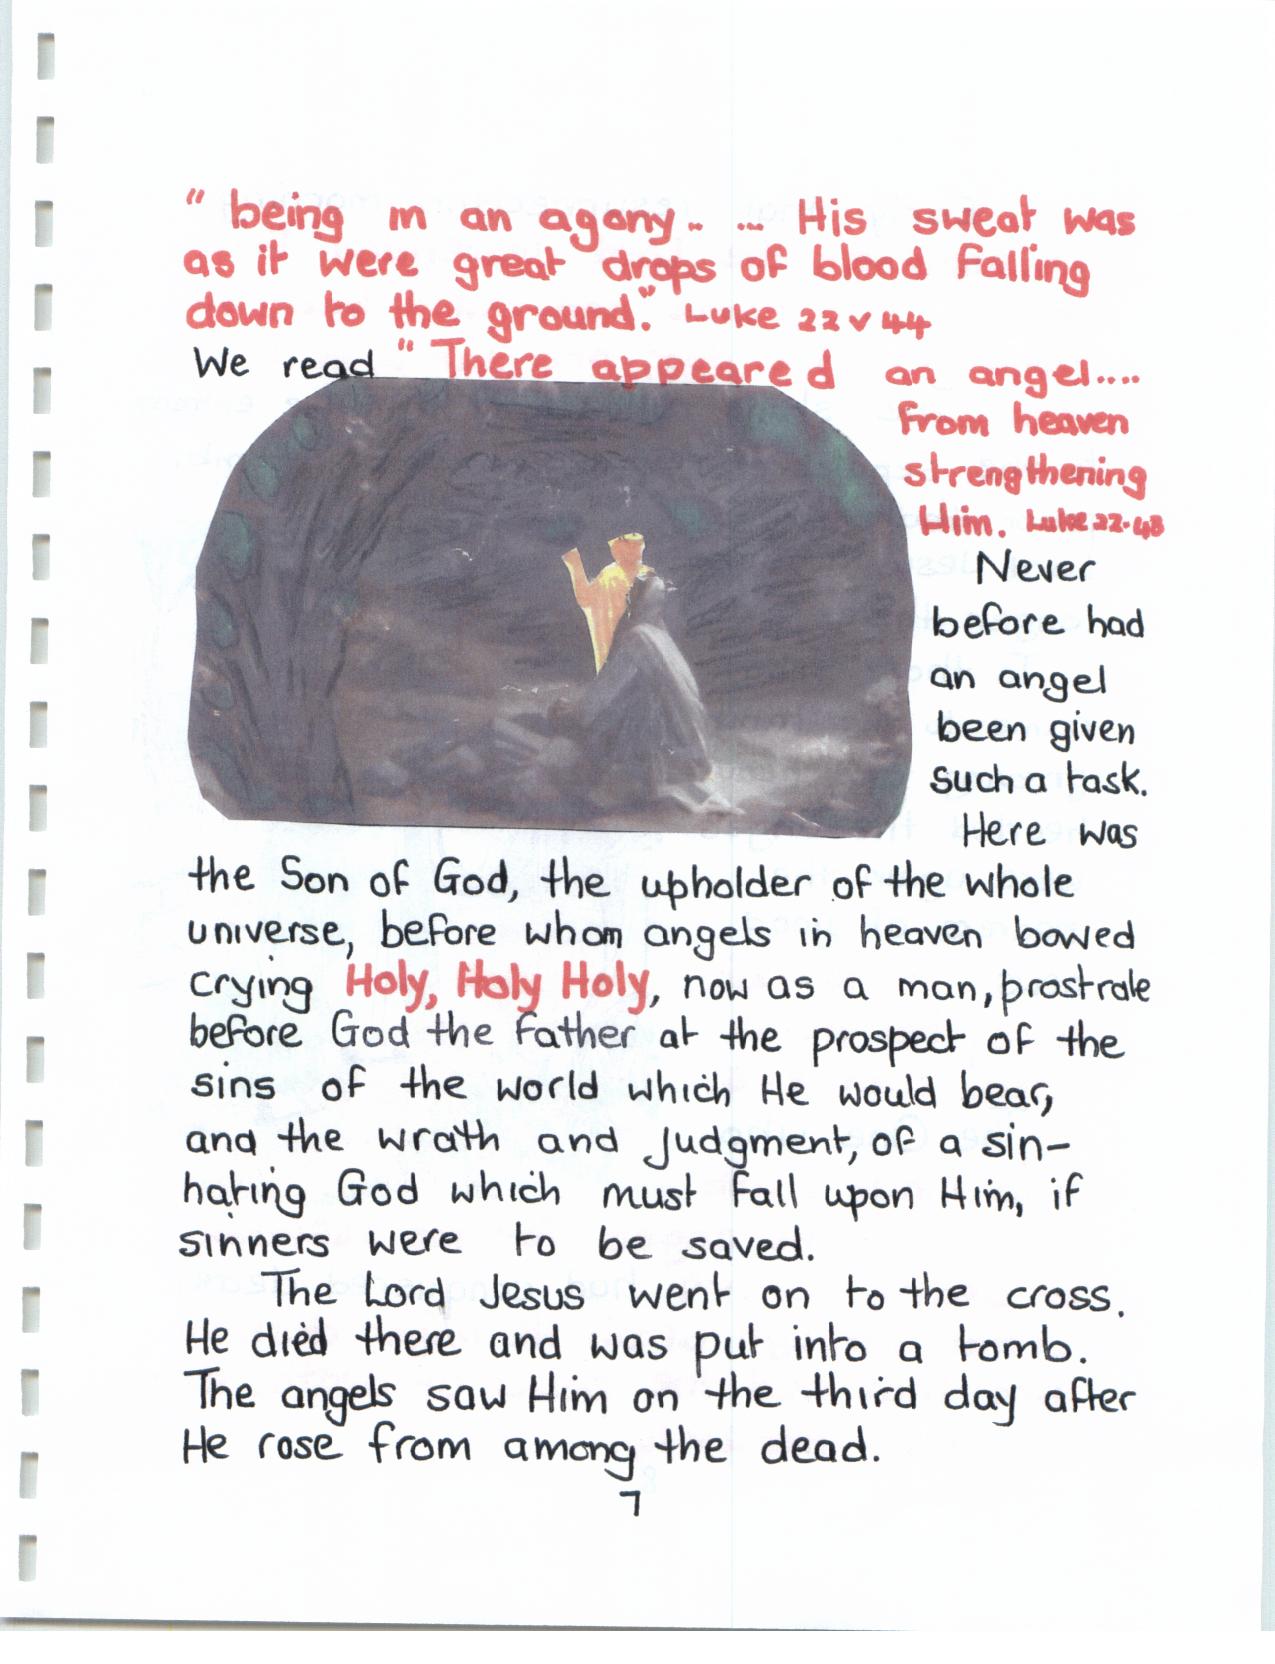 " being in an agony.. ... His sweat was
as it were great drops of blood falling
down to the ground." Luke 22 v 44
We read " There appeared an angel....
from heaven
strengthening
Him. Luke 22.43
Never
before had
an angel
been given
such a task.
Here was
the Son of God, the upholder of the whole
universe, before whom angels in heaven bowed
crying Holy, Holy Holy, now as a man, prostrate
before God the Father at the prospect of the
sins of the world which He would bear,
and the wrath and judgment, of a sin-
hating God which must fall upon Him, if
sinners were to be saved.
The Lord Jesus went on to the cross.
He died there and was put into a tomb.
The angels saw Him on the third day after
He rose from among the dead.
7